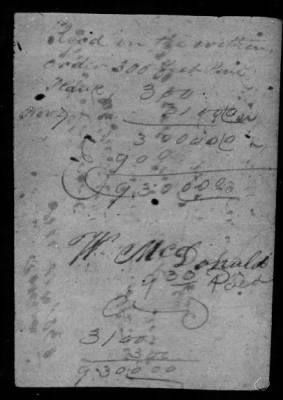 Recd on the within
order 300 feet Pine
Plank 300
Nov 7 3100
300000
900
930000
W. McDonald
930 Paid
3100
300
930000